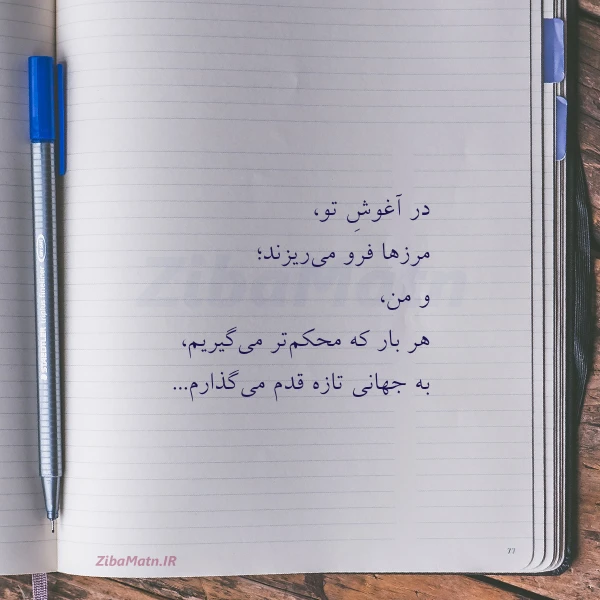 در آغوشِ تو،
مرزها فرو می‌ریزند؛
و من،
هر بار که محکم‌تر می‌گیریم،
به جهانی تازه قدم می‌گذارم...
ZibaMatn
ZibaMatn.IR